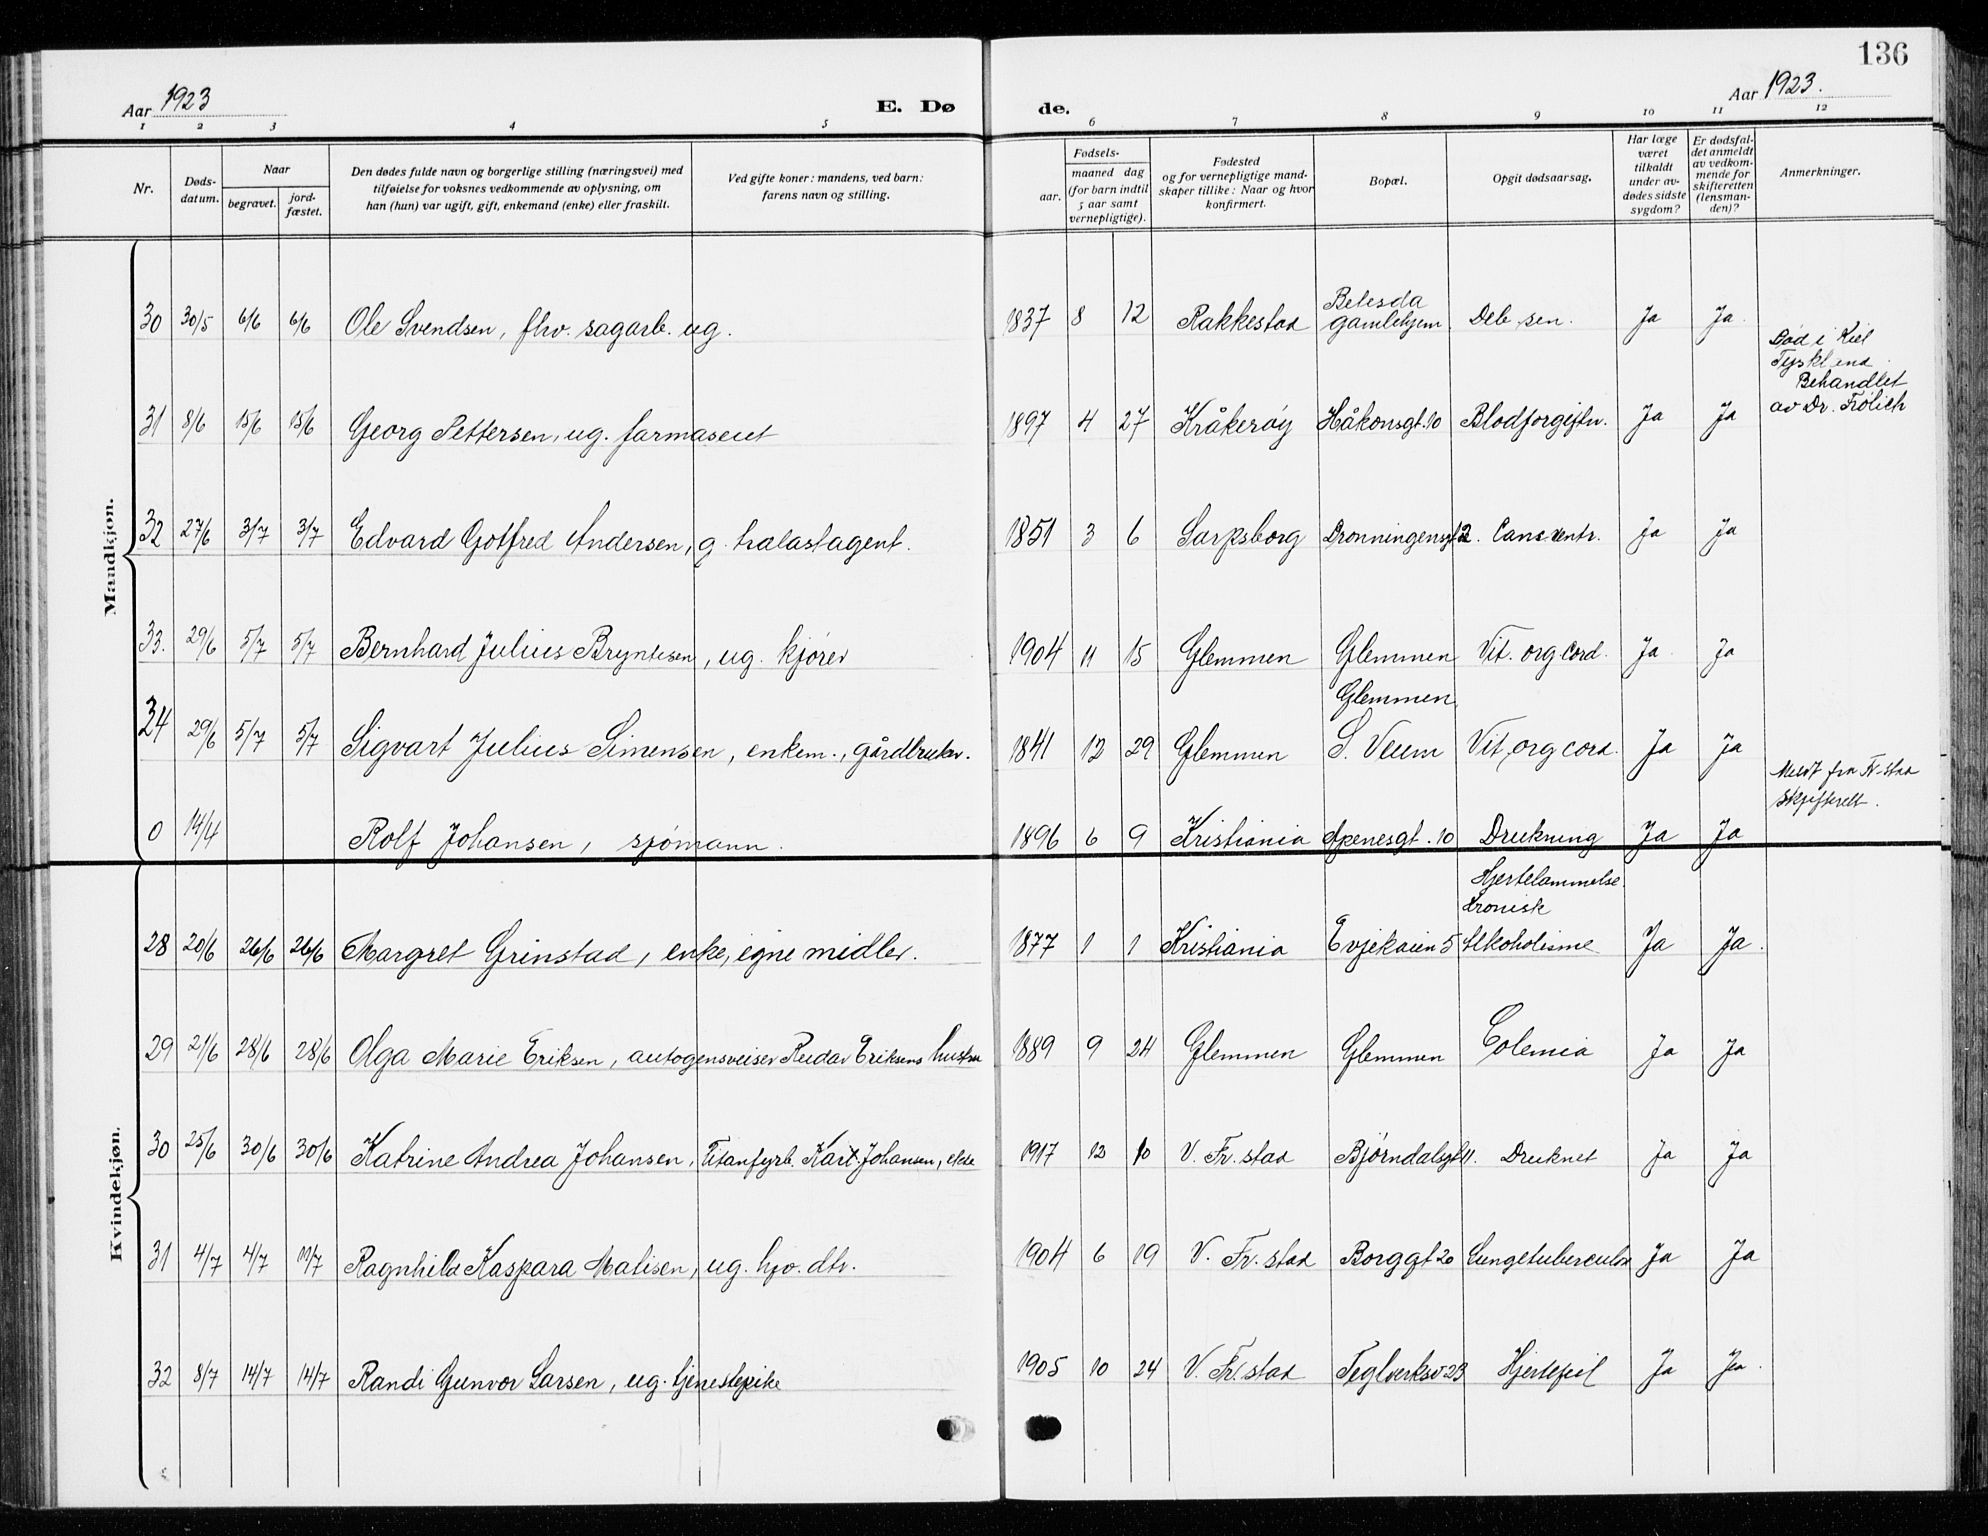 136
Aar 1923
E. Døde.
Aar 1923.
1 2 3 4 5 6 7 8 9 10 11 12
Nr.
Døds-datum.
Naar
begravet.
jord-fæstet.
Den dødes fulde navn og borgerlige stilling (næringsvei) med
tilføielse for voksnes vedkommende av oplysning, om
han (hun) var ugift, gift, enkemand (enke) eller fraskilt.
Ved gifte koner: mandens, ved barn:
farens navn og stilling.
Fødsels-
aar.
maaned dag
(for barn indtil
5 aar samt
vernepligtige).
Fødested
og for vernepligtige mand-
skaper tillike: Naar og hvor
konfirmert.
Bopæl.
Opgit dødsaarsag.
Har læge
været
tilkaldt
under av-
dødes sidste
sygdom?
Er dødsfal-
det anmeldt
av vedkom-
mende for
skifteretten
(lensman-
den)?
Anmerkninger.
Mandkjøn.
30 30/5 6/6 6/6 Ole Svendsen, fhv. sagarb. ug. 1837 8 12 Rakkestad Betesda gamlehjem Deb. sen. Ja Ja.
31 8/6 15/6 15/6 Georg Pettersen, ug. farmaseut 1897 4 27 Kråkerøy Håkonsgt. 10 Blodforgiftn. Ja Ja
Død i Kiel
Tyskland
Behandlet
av Dr. Frölich
32 27/6 3/7 3/7 Edvard Gotfred Andersen, g. tralastagent. 1851 3 6 Sarpsborg Dronningensgt 2. Canc. ventr. Ja Ja
33. 29/6 5/7 5/7 Bernhard Julius Bryntesen, ug. kjører 1904 11 15 Glemmen Glemmen Vit. org cord. Ja. Ja
34 29/6 5/7 5/7 Sigvart Julius Simensen, enkem., gårdbruker. 1841 12 29 Glemmen Glemmen S. Veum Vit. org cord. Ja Ja
0 14/4 Rolf Johansen, sjømann. 1896 6 9 Kristiania Apenesgt. 10 Drukning Ja Ja
Meldt fra Fr-stad
Skifterett.
Kvindekjøn.
28 20/6 26/6 26/6 Margret Grinstad, enke, egne midler. 1877 1 1 Kristiania Evjekaien 5 Hjertelammelse. Kronisk Alkoholisme Ja Ja.
29 21/6 28/6 28/6 Olga Marie Eriksen, autogensveiser Reidar Eriksens hustru 1889 9 24 Glemmen Glemmen Colemia Ja Ja
30 25/6 30/6 30/6 Katrine Andrea Johansen, Titanfyrb. Karl Johansen, 1917 12 10 V. Fr. stad Bjørndalsgt 11. Druknet Ja Ja
31 4/7 4/7 11/7 Ragnhild Kaspara Matisen, ug. hjv. dtr. 1904 6 19 V. Fr. stad Borggt 20 Lungetuberculose Ja Ja
32 8/7 14/7 14/7 Randi Gunvor Larsen, ug. tjenestepike 1905 10 24 V. Fr. stad Teglverksv 23 Hjertefeil Ja Ja.